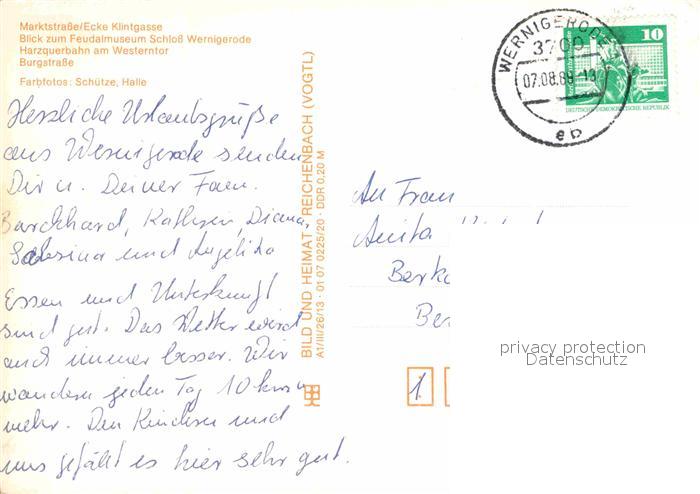 Marktstraße/Ecke Klintgasse
Blick zum Feudalmuseum Schloß Wernigerode
Harzquerbahn am Westerntor
Burgstraße
Farbfotos: Schütze, Halle
Herzliche Urlaubsgrüße
aus Wernigerode senden
Dir u. Deiner Fam.
Burckhard, Kathrin, Diana,
Sabrina und Angelika
Essen und Unterkunft
sind gut. Das Wetter wird
auch immer besser. Wir
wandern jeden Tag 10 km u
mehr. Den Kindern und
uns gefällt es hier sehr gut.
BILD UND HEIMAT REICHENBACH (VOGTL)
A1/III/26/13 · 01 07 0225/20 · DDR 0,20 M
WERNIGERODE
3700
07.08.89-13
10
DEUTSCHE DEMOKRATISCHE REPUBLIK
An Frau
Anita
Berk
Be
1
privacy protection
Datenschutz